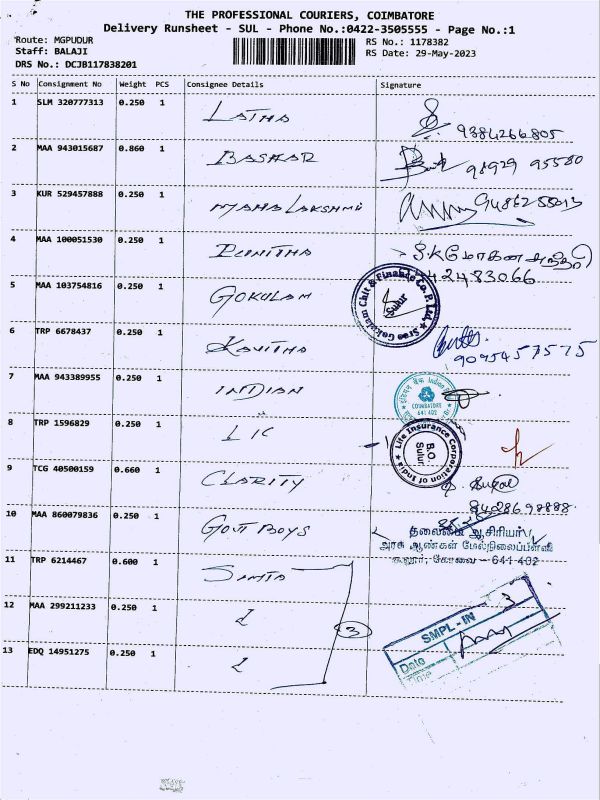 THE PROFESSIONAL COURIERS, COIMBATORE
Delivery Runsheet - SUL - Phone No.:0422-3505555 - Page No.:1
Route: MGPUDUR
RS No.: 1178382
Staff: BALAJI
RS Date: 29-May-2023
DRS No.: DCJB117838201
S No Consignment No Weight PCS Consignee Details Signature
1 SLM 320777313 0.250 1 LATHA 9384266805
2 MAA 943015687 0.860 1 BASKAR 98929 95580
3 KUR 529457888 0.250 1 MAHALAKSHMI
4 MAA 100051530 0.250 1 PUNITHA
42483066
5 MAA 103754816 0.250 1 GOKULAM
Sree Gokulam Chit & Finance Co.P.Ltd. Sulur
6 TRP 6678437 0.250 1 KAVITHA
9095457575
7 MAA 943389955 0.250 1 INDIAN
COIMBATORE
641 402
8 TRP 1596829 0.250 1 LIC
Life Insurance Corporation of India
B.O.
Sulur
9 TCG 40500159 0.660 1 CLARITY
8428698888
10 MAA 860079836 0.250 1 GOVT BOYS
தலைமை ஆசிரியர்
அரசு ஆண்கள் மேல்நிலைப்பள்ளி
சூலூர், கோவை - 641 402
11 TRP 6214467 0.600 1
12 MAA 299211233 0.250 1
3
SMPL - IN
Date
Time
13 EDQ 14951275 0.250 1